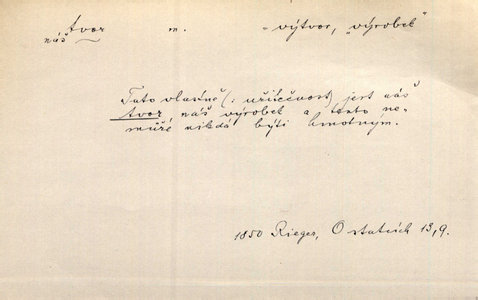 tvor m. = výtvor, "výrobek"
náš
Tato vlastně (: užitečnost) jest náš
tvor náš výrobek a tento ne-
může nikdá býti hmotným.
1850 Rieger, O statcích 13,9.